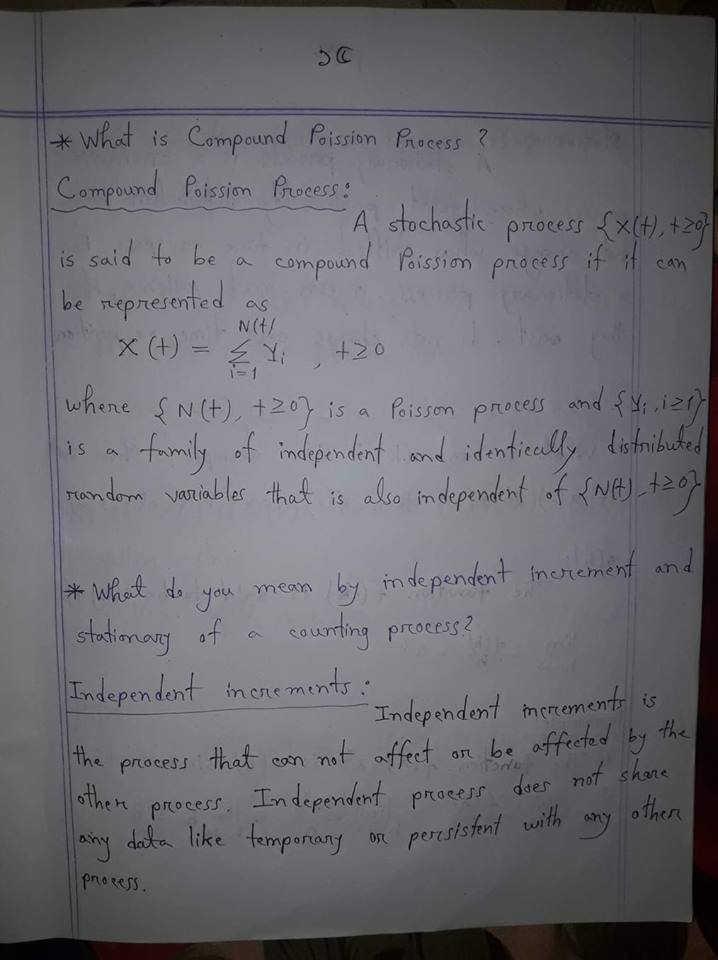 * What is Compound Poission Process?
Compound Poission Process:
A stochastic process {X(t), t≥0}
is said to be a compound Poission process if it can
be represented as
X(t) = \sum_{i=1}^{N(t)} Y_i , t≥0
where {N(t), t≥0} is a Poisson process and {Y_i, i≥1}
is a family of independent and identically distributed
random variables that is also independent of {N(t), t≥0}
* What do you mean by independent increment and
stationary of a counting process?
Independent increments:
Independent increments is
the process that can not affect or be affected by the
other process. Independent process does not share
any data like temporary or persistent with any other
process.